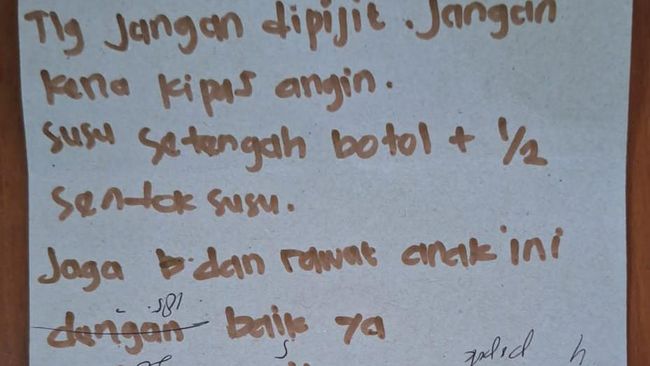 Tlg jangan dipijit. Jangan
kena kipas angin.
susu setengah botol + 1/2
sentok susu.
Jaga b dan rawat anak ini
dengan baik ya